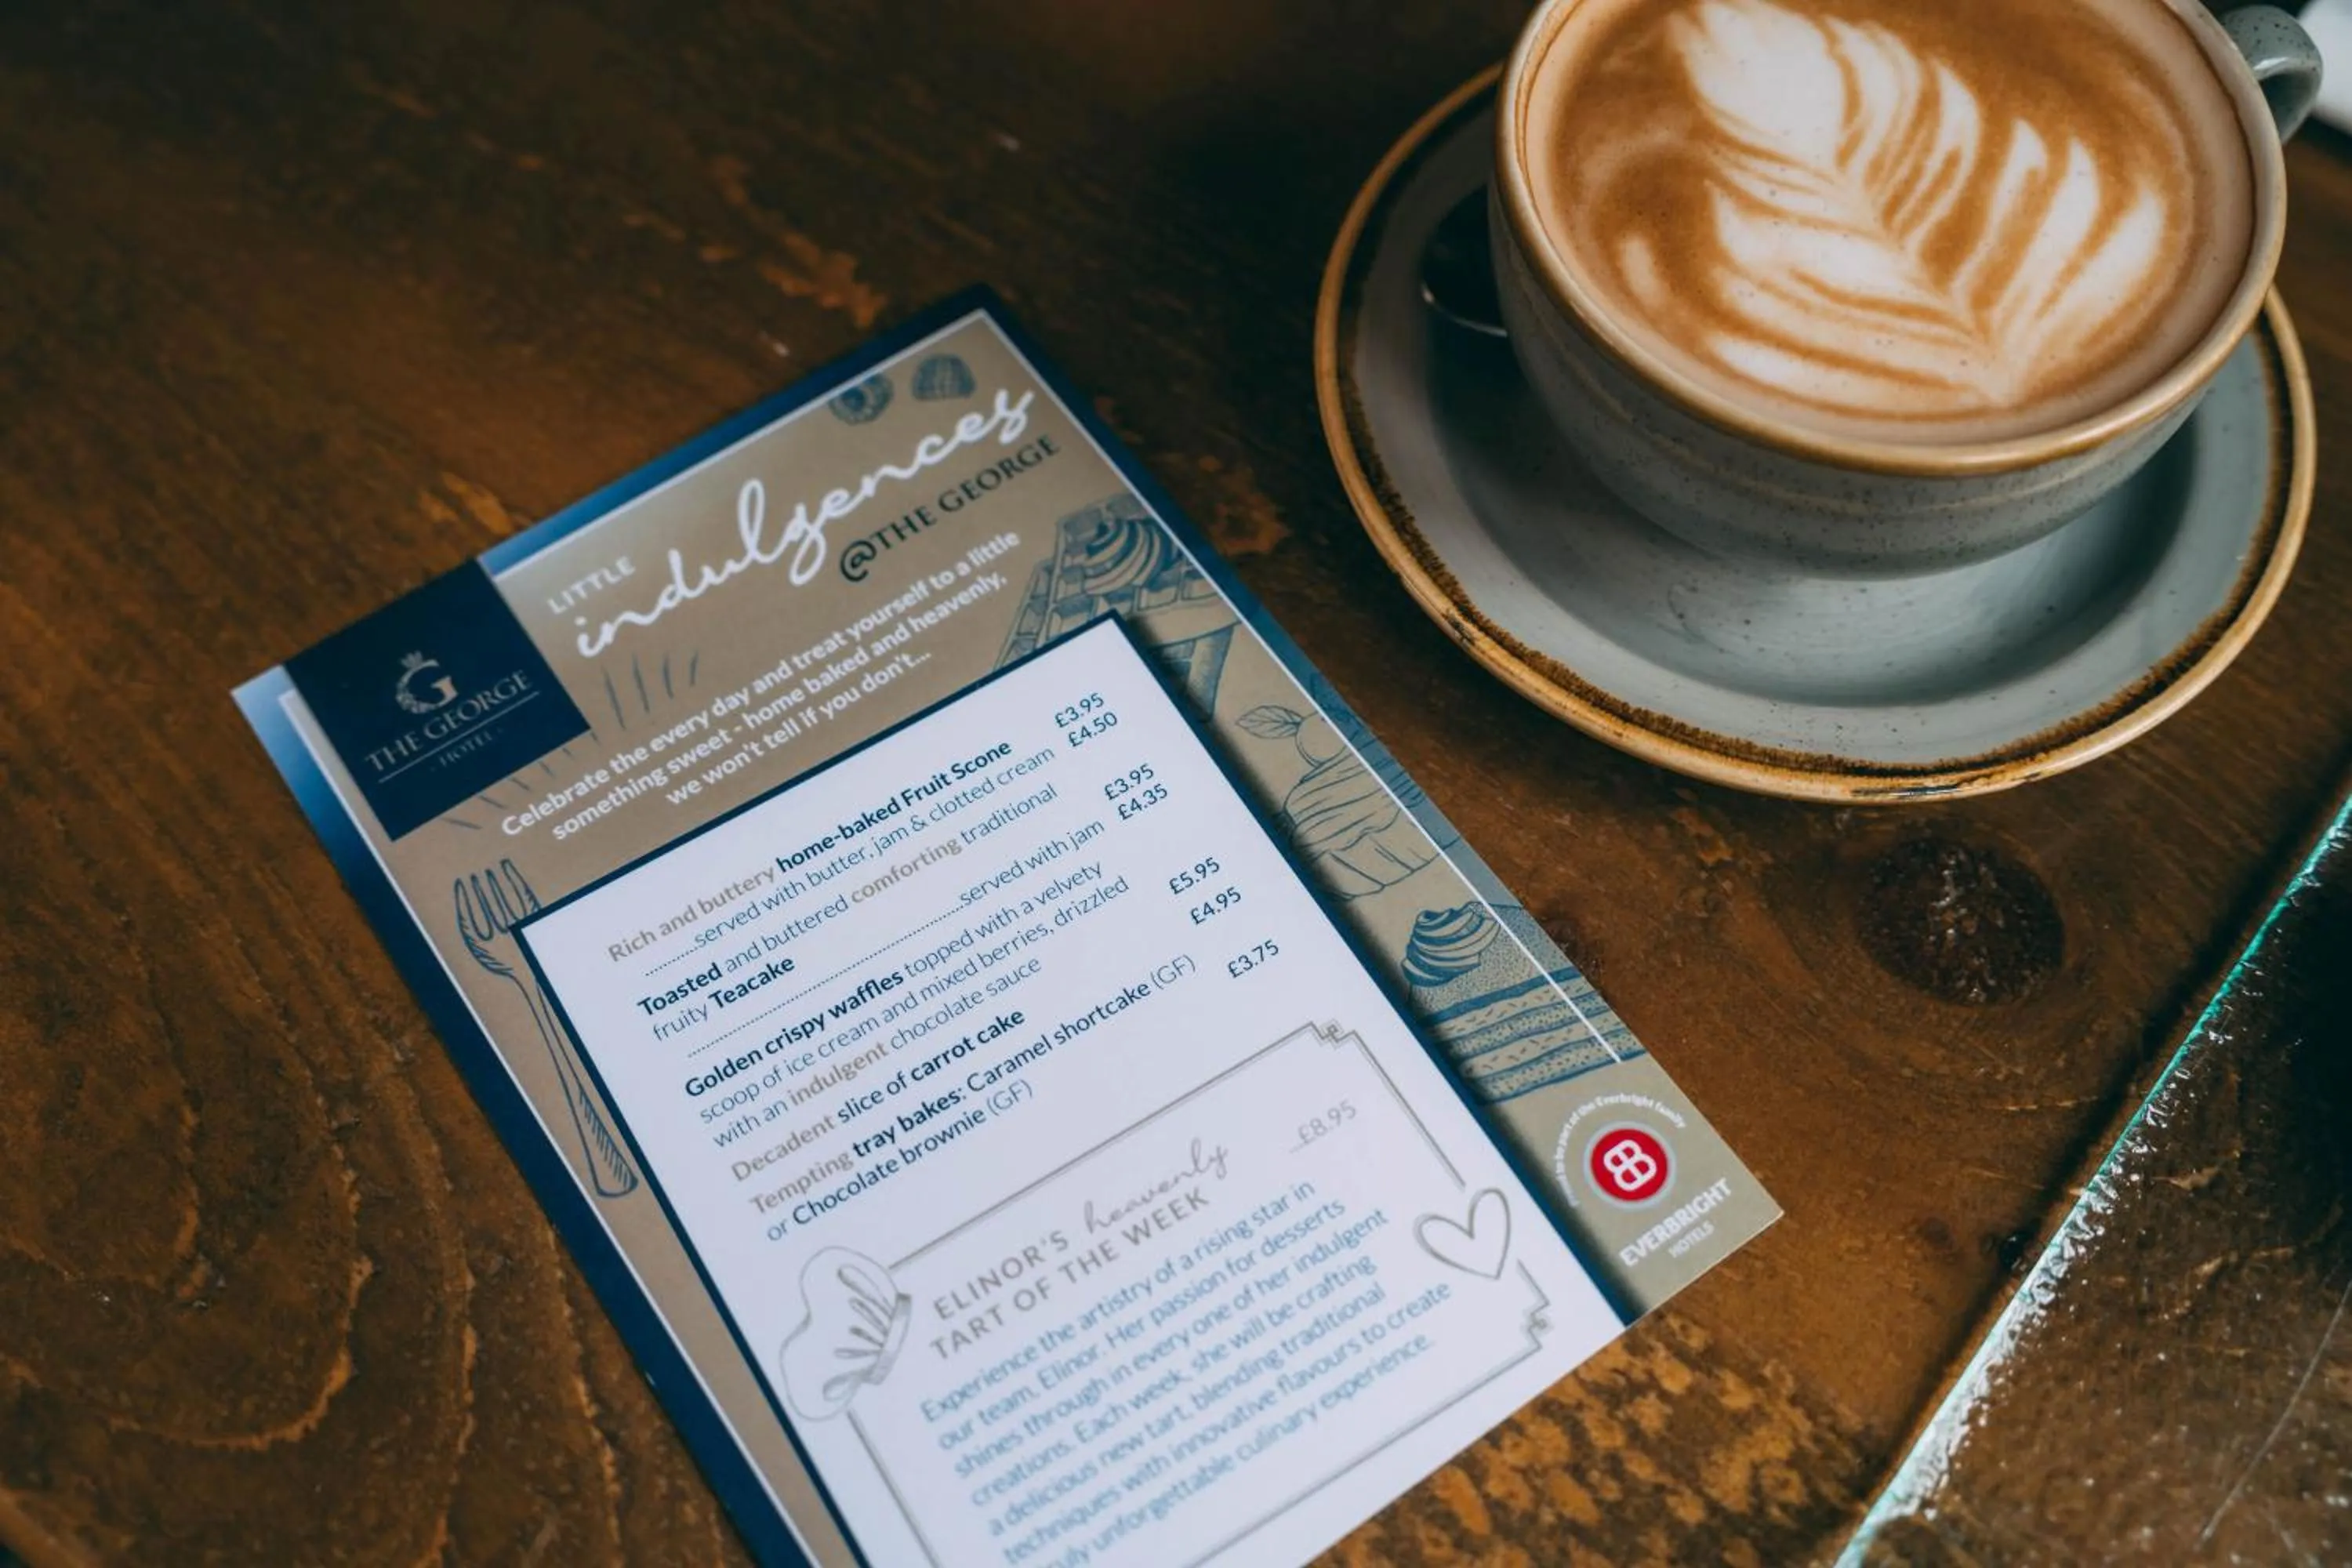 LITTLE
indulgences
@THE GEORGE
G
THE GEORGE
· HOTEL ·
Celebrate the every day and treat yourself to a little
something sweet - home baked and heavenly,
we won't tell if you don't...
Rich and buttery home-baked Fruit Scone £3.95
..........served with butter, jam & clotted cream £4.50
Toasted and buttered comforting traditional
fruity Teacake £3.95
..........served with jam £4.35
Golden crispy waffles topped with a velvety
scoop of ice cream and mixed berries, drizzled
with an indulgent chocolate sauce £5.95
Decadent slice of carrot cake £4.95
Tempting tray bakes: Caramel shortcake (GF)
or Chocolate brownie (GF) £3.75
ELINOR'S heavenly
TART OF THE WEEK £8.95
Experience the artistry of a rising star in
our team, Elinor. Her passion for desserts
shines through in every one of her indulgent
creations. Each week, she will be crafting
a delicious new tart, blending traditional
techniques with innovative flavours to create
truly unforgettable culinary experience.
to be part of the Everbright family
EVERBRIGHT
HOTELS